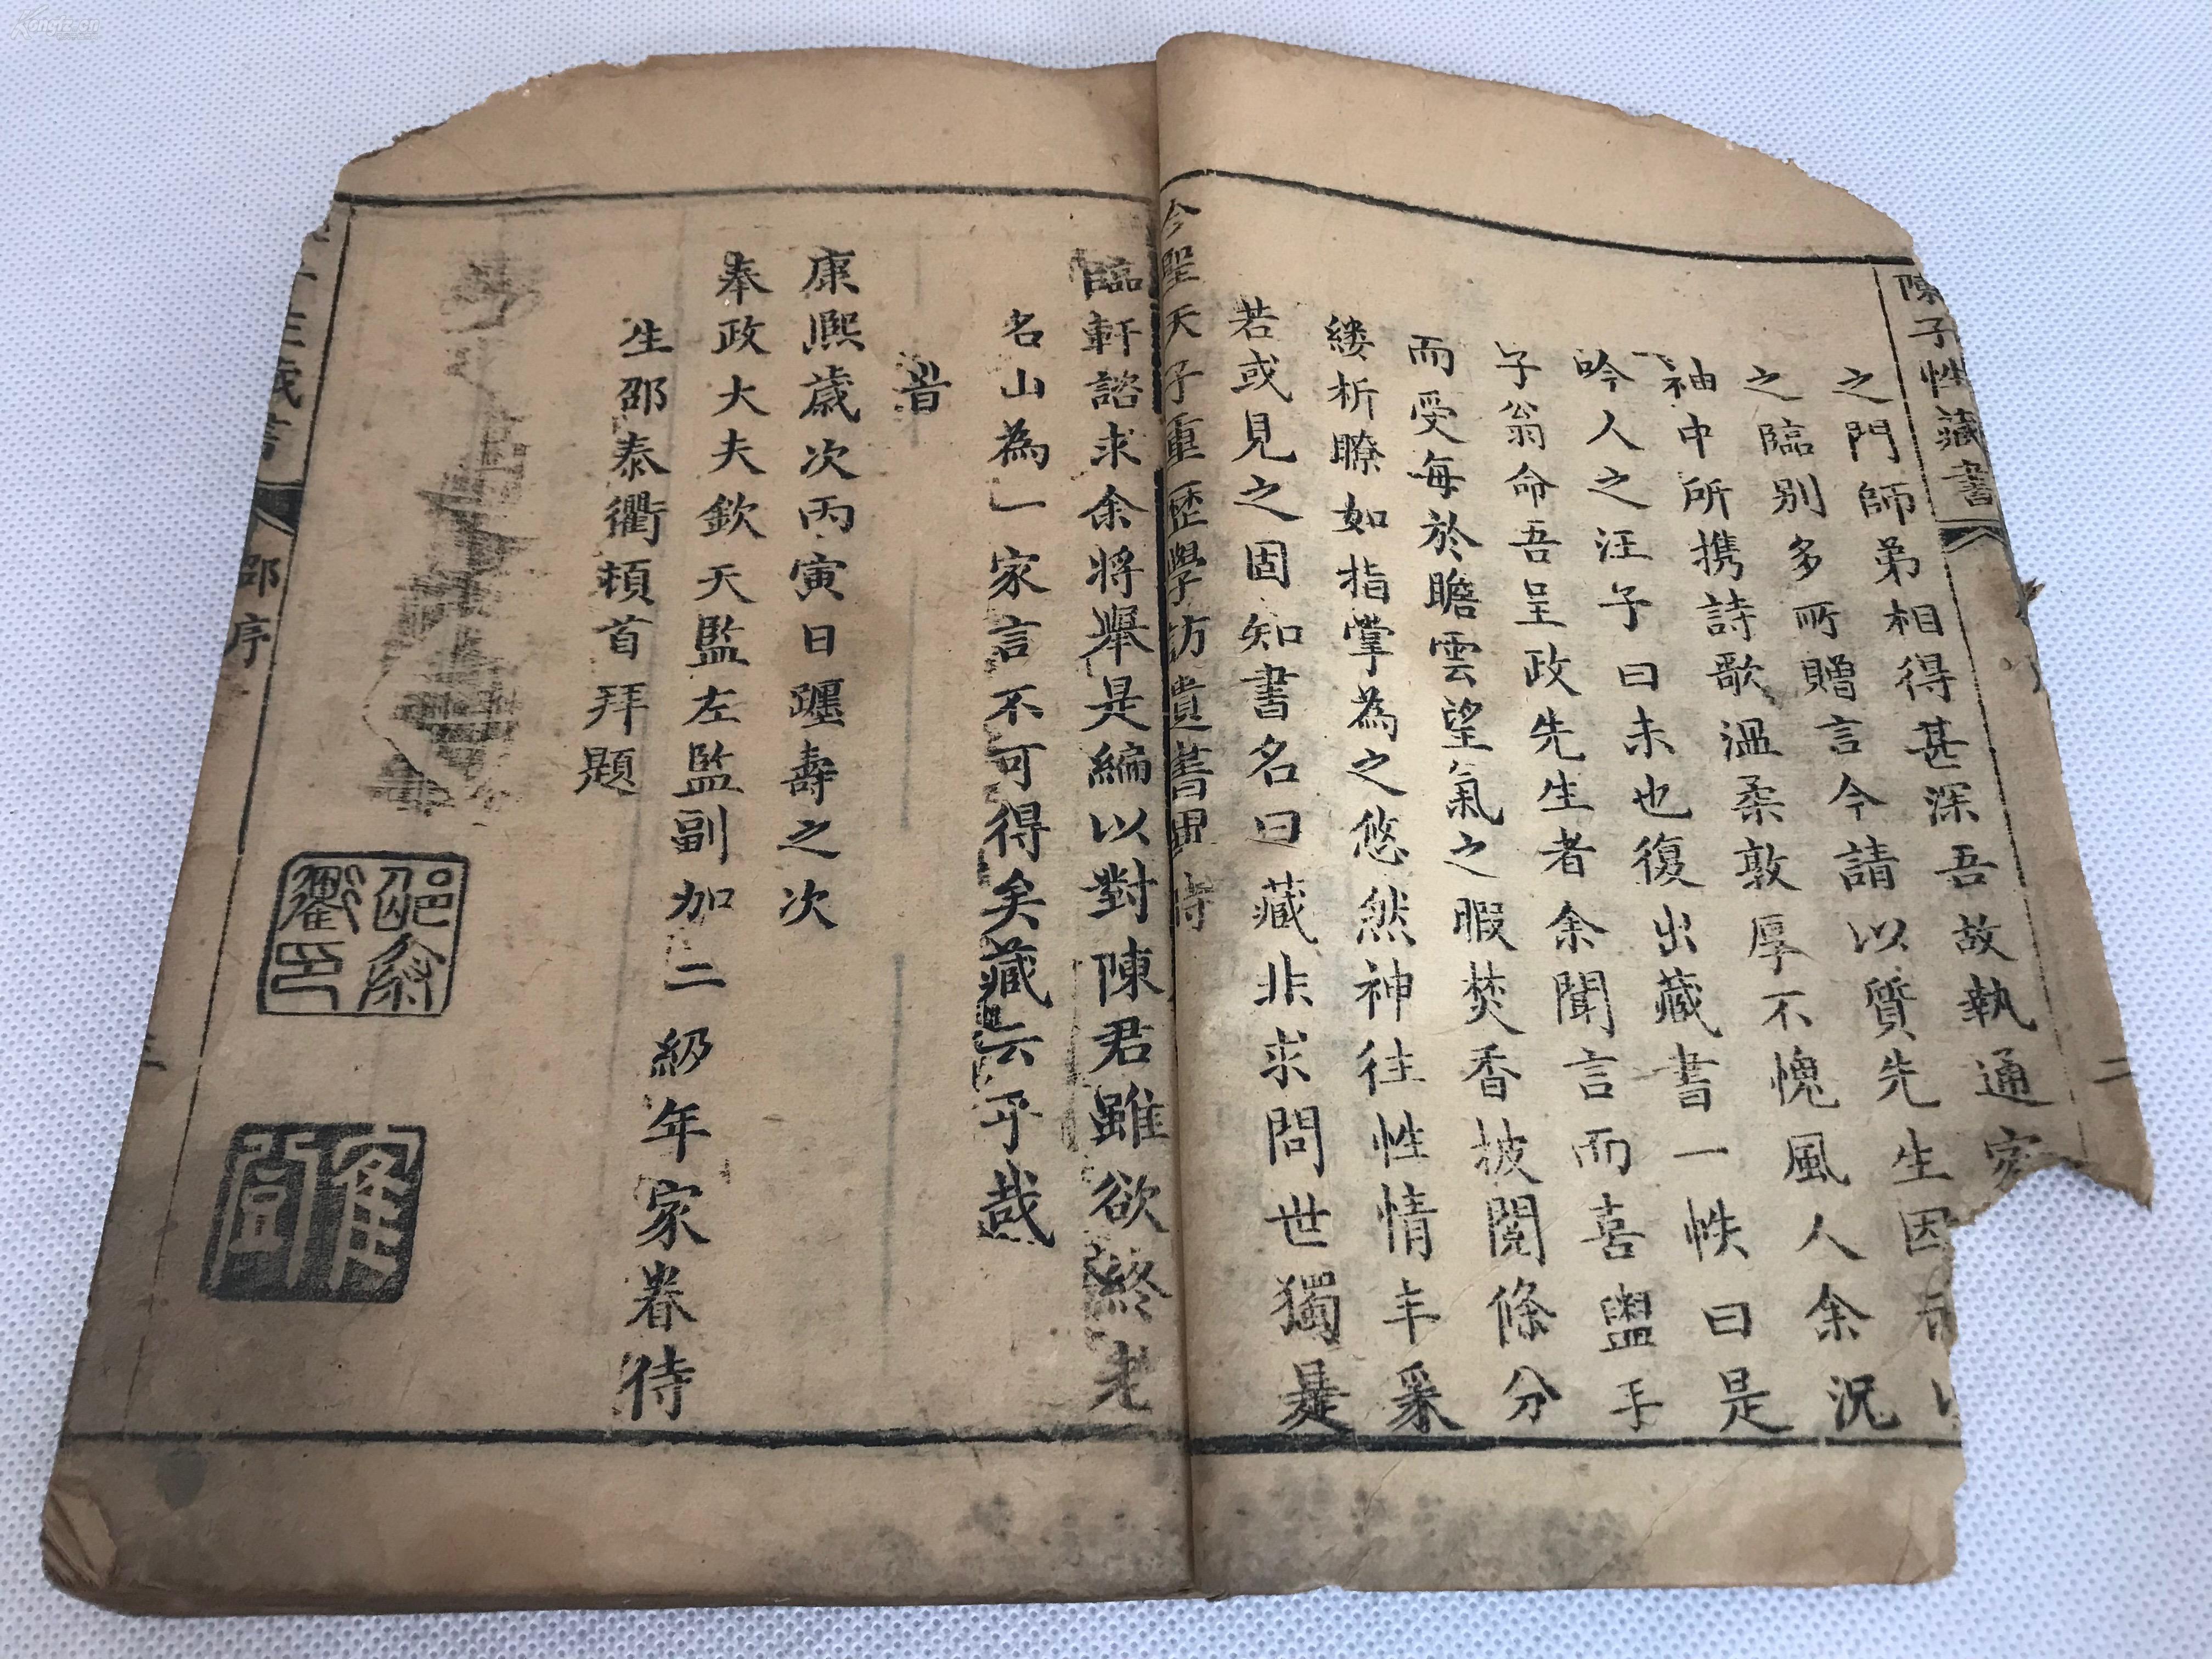 陳子性藏書
二
之門師弟相得甚深吾故執通家
之臨别多所贈言今請以質先生因
袖中所携詩歌溫柔敦厚不愧風人余況
吟人之汪子曰未也復出藏書一帙曰是
子翁命吾呈政先生者余聞言而喜盥手
而受每於瞻雲望氣之暇焚香披閱條分
縷析瞭如指掌為之悠然神往性情丰采
若或見之固知書名曰藏非求問世獨是
今聖天子重歷學訪遺書異時
臨軒諮求余將舉是編以對陳君雖欲終老
名山為一家言不可得矣藏云乎哉
旹
康熙歲次丙寅日躔壽之次
奉政大夫欽天監左監副加二級年家眷侍
生邵泰衢頓首拜題
邵序
Kongfz.cn